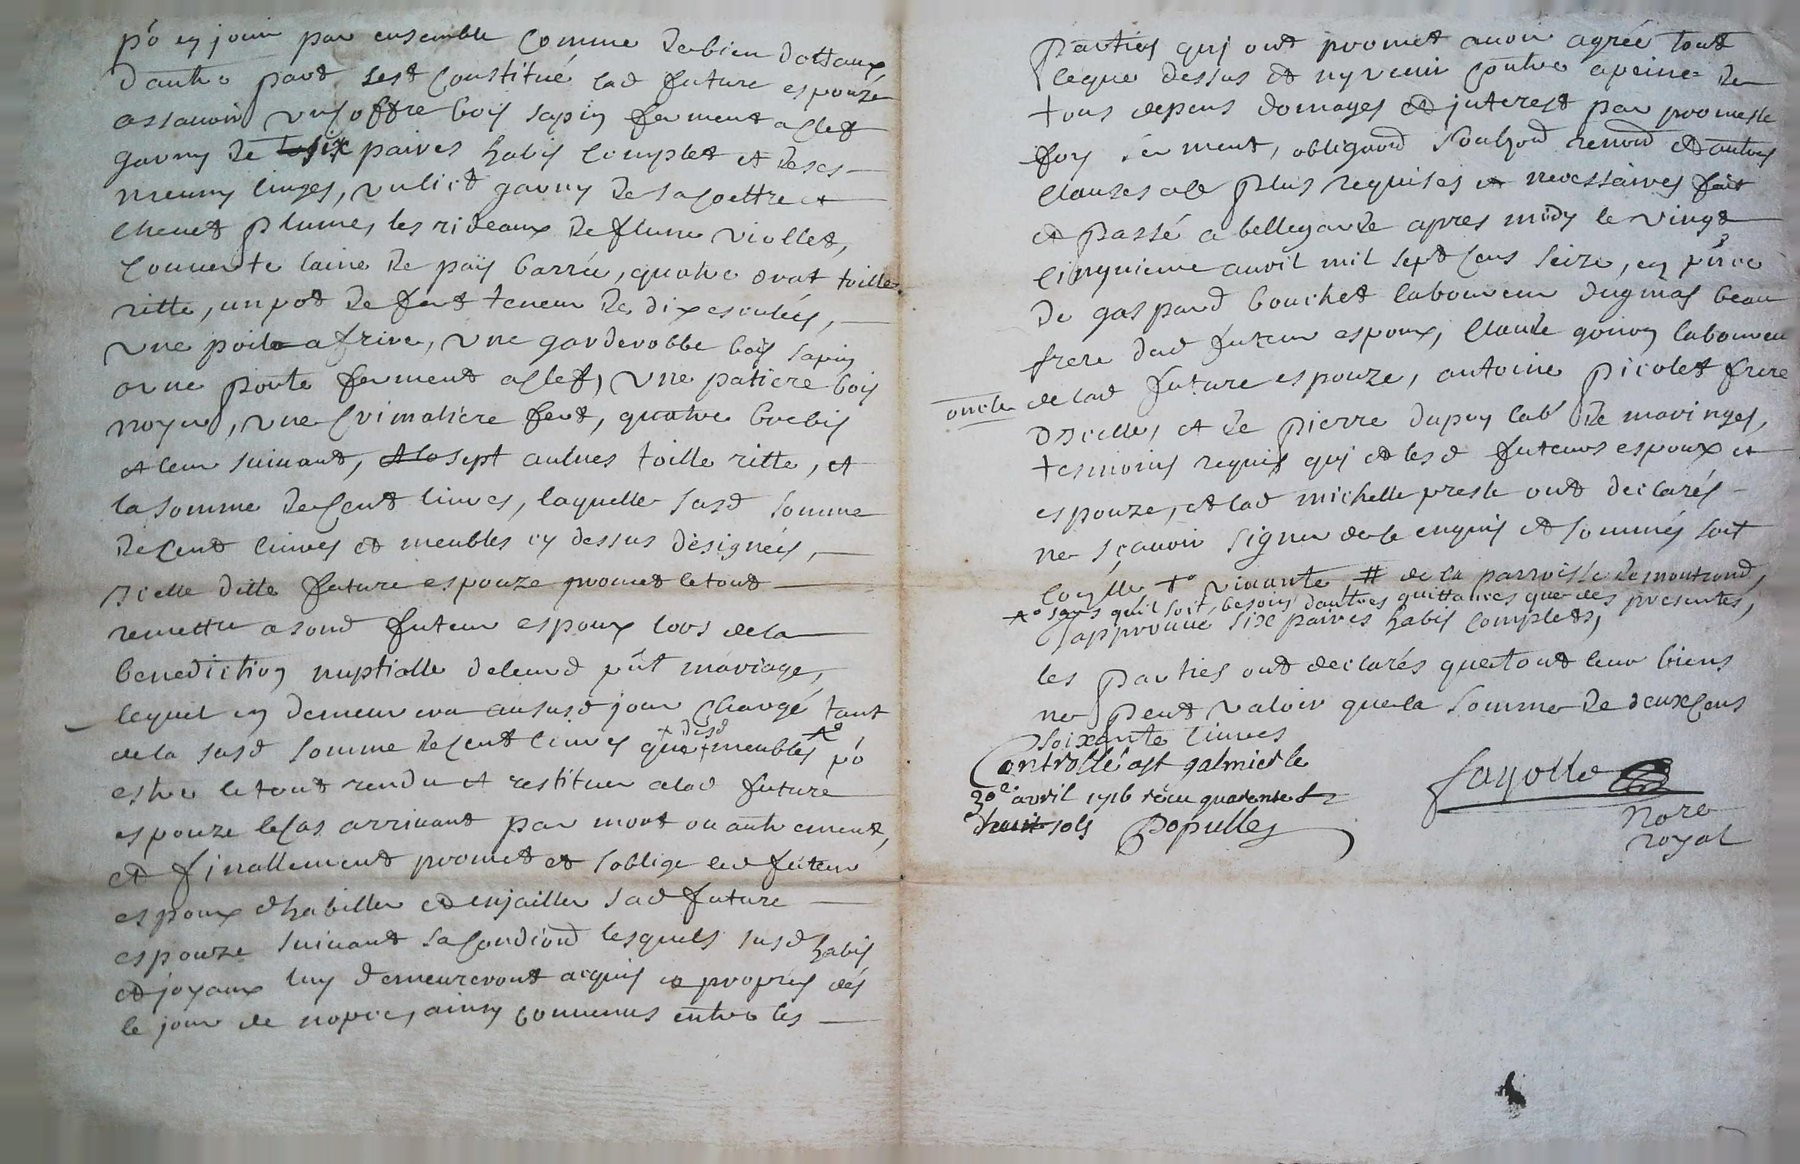 po en jouir par ensemble comme de bien dottaux
d'autre part sest constitué lad future espouze
assavoir un coffre bois sapin ferment a clef
garny de six paires habis complet et de ses
menuy linges, un lict garny de sa coettre et
chevet plume, les rideaux de fleure viollet,
couverte laine de païs barrée, quatre drat toille
ritte, un pot de fert teneur de dix escuëlés,
une poile a frire, une garderobbe bois sapin
a une porte ferment a clef, une patiere bois
noyer, une crimaliere fert, quatre brebis
et leur suivant, sept aulnes toille ritte, et
la somme de cent livres, laquelle susd somme
de cent livres et meubles cy dessus désignéés,
icelle ditte future espouze promet le tout
remettre a sond futeur espoux lors de la
benediction nuptialle de leurd pñt mariage,
lequel en demeurera au susd jour chargé tant
de la susd somme de cent livres que + desd meubles po
estre le tout rendu et restituer a lad future
espouze le cas arrivant par mort ou autrement,
et finallement promet et s'oblige led futeur
espoux d'habiller et enjailler sad future
espouze suivant sa condiond lesquels susd habis
et joyaux luy demeureront acquis et propres dés
le jour de nopce, ainsy convenus entre les
Parties qui ont promet avoir agréé tout
ceque dessus et ny venir contre a peine de
tous depens domages et interest par promesse
foy serment, obligaond soubzond renond et autres
clauses a ce plus requises et necessaires fait
et passé a bellegarde apres midy le vingt
cinquieme avril mil sept cens seize, en pñce
de gaspard bouchet laboureur dugmas beau
frere dud futeur espoux, claude gonon laboureur
oncle de lad future espouze, antoine picolet frere
d'icelle, et de pierre dupuy labr de maringes,
tesmoins requis qui et lesd futeurs espoux et
espouze, et lad michelle presle ont declarés
ne sçavoir signer de ce enquis et sommés soit
conlle + vivante # de la parroisse de montrond,
sans qu'il soit besoin d'autres quittances que des presentes,
J'approuve six paires habis complets,
les parties ont declarés que tout leur biens
ne peut valoir que la somme de deux cens
soixante livres
Controllé a st galmier le
30e avril 1716 recu quarente
huit sols Populles
fayolle
Nore
royal